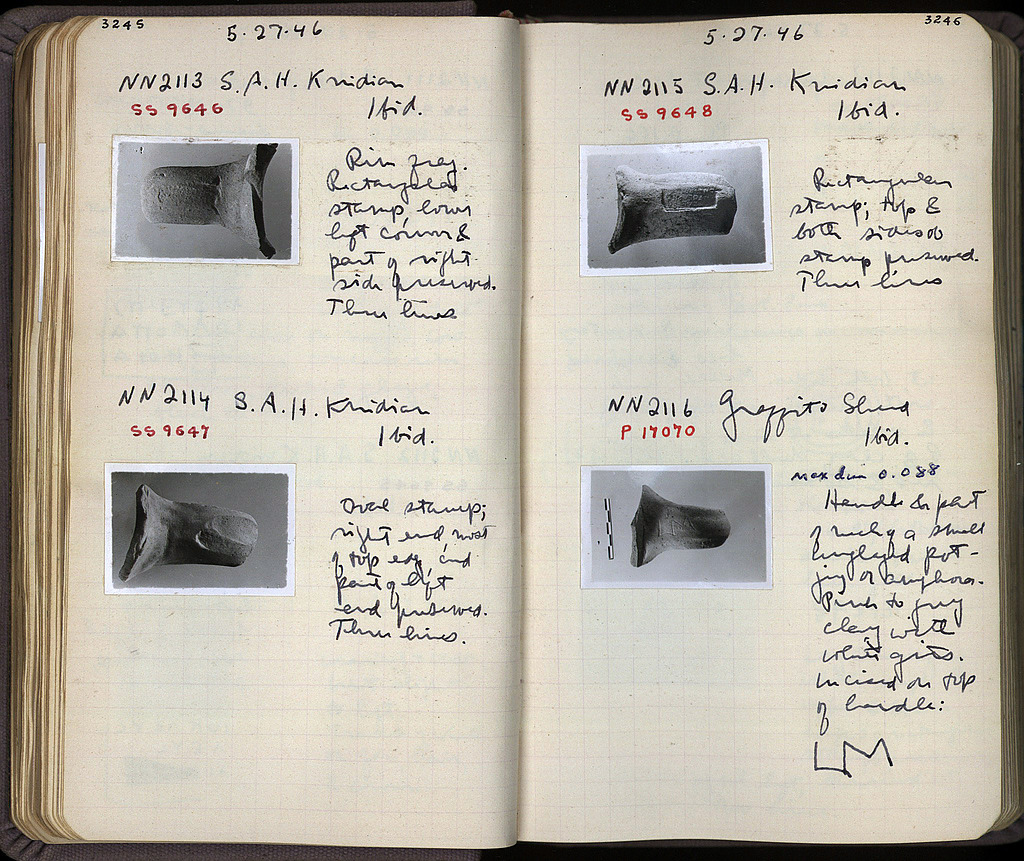 3245
5·27·46
NN2113 S.A.H. Knidian
SS 9646
Ibid.
Rim frag.
Rectangular
stamp, lower
left corner &
part of right
side preserved.
Three lines
NN2114 S.A.H. Knidian
SS 9647
Ibid.
Oval stamp;
right end, most
of top edge, and
part of left
end preserved.
Three lines.
3246
5·27·46
NN2115 S.A.H. Knidian
SS 9648
Ibid.
Rectangular
stamp; top &
both sides of
stamp preserved.
Three lines
NN2116 Graffito Sherd
P 17070
Ibid.
max dim 0.088
Handle & part
of neck of a small
unglazed pot -
jug or amphora.
Pink to grey
clay with
white grits.
Incised on top
of handle:
LM